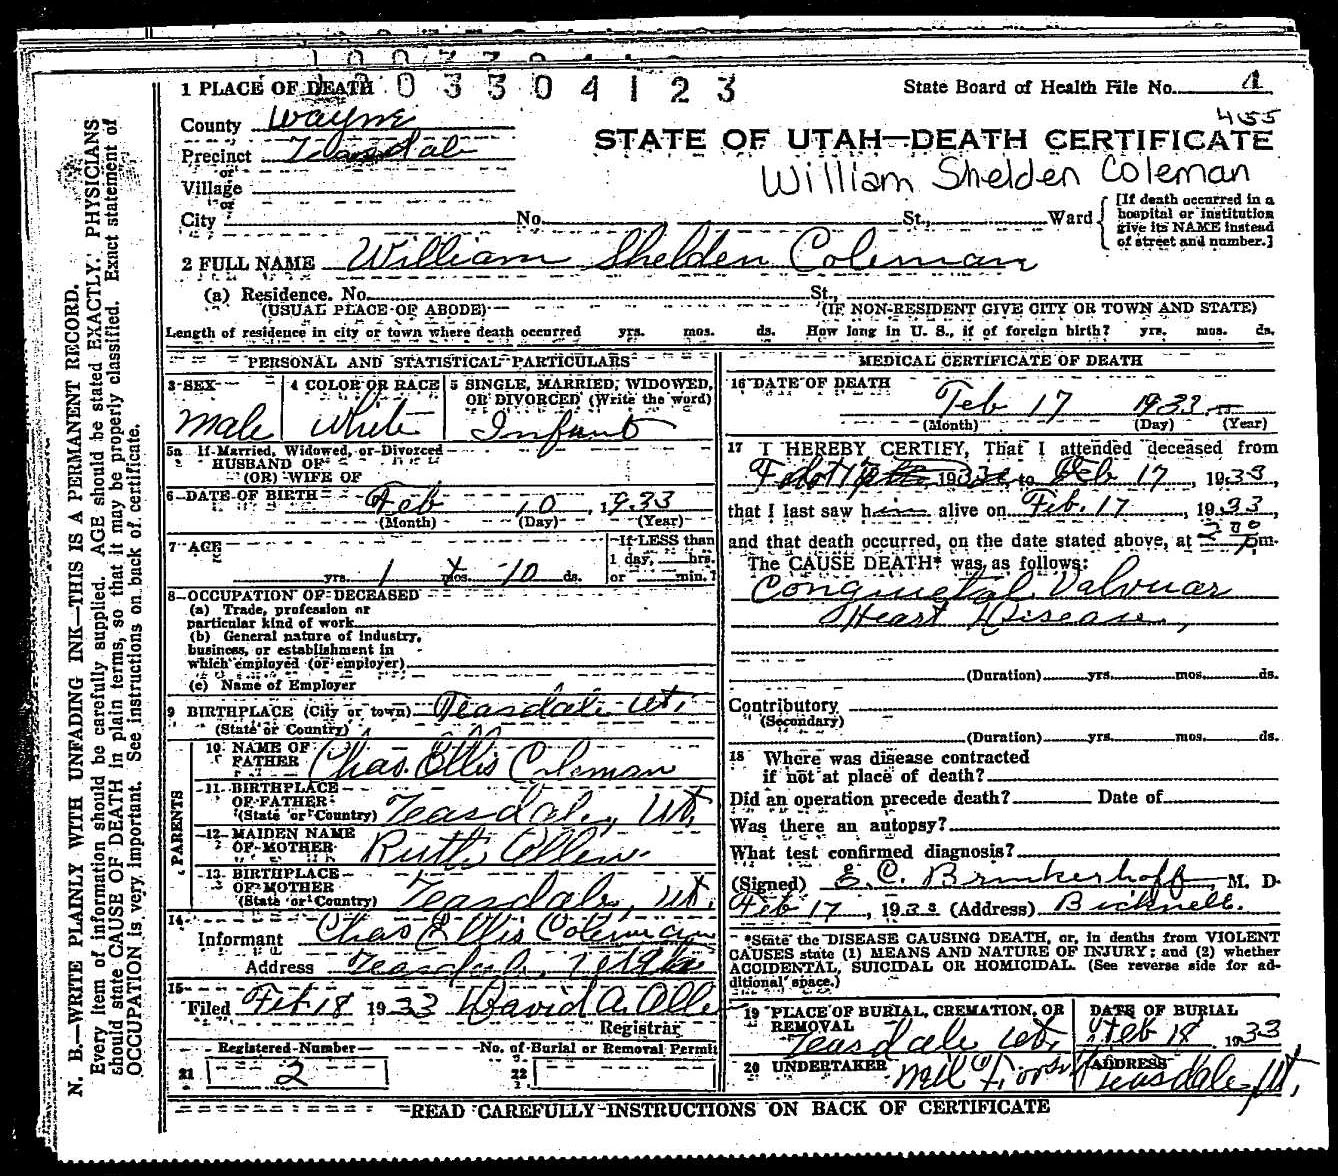 1 PLACE OF DEATH 0 3 3 0 4 1 2 3 State Board of Health File No. 4
455
County Wayne
STATE OF UTAH—DEATH CERTIFICATE
Precinct Teasdale
William Shelden Coleman
or
Village
or
City No. St., Ward
[If death occurred in a
hospital or institution
give its NAME instead
of street and number.]
2 FULL NAME William Shelden Coleman
(a) Residence. No. St.,
(USUAL PLACE OF ABODE) (IF NON-RESIDENT GIVE CITY OR TOWN AND STATE)
Length of residence in city or town where death occurred yrs. mos. ds. How long in U. S., if of foreign birth? yrs. mos. ds.
PERSONAL AND STATISTICAL PARTICULARS
3 SEX
Male
4 COLOR OR RACE
White
5 SINGLE, MARRIED, WIDOWED,
OR DIVORCED (Write the word)
Infant
5a If Married, Widowed, or Divorced
HUSBAND OF
(OR) WIFE OF
6 DATE OF BIRTH Feb 10, 1933
(Month) (Day) (Year)
7 AGE
yrs. 1 mos. 10 ds.
If LESS than
1 day, hrs.
or min.?
8 OCCUPATION OF DECEASED
(a) Trade, profession or
particular kind of work
(b) General nature of industry,
business, or establishment in
which employed (or employer)
(c) Name of Employer
9 BIRTHPLACE (City or town) Teasdale Ut.
(State or Country)
PARENTS
10 NAME OF
FATHER Chas. Ellis Coleman
11 BIRTHPLACE
OF FATHER
(State or Country) Teasdale, Ut.
12 MAIDEN NAME
OF MOTHER Ruth Allen
13 BIRTHPLACE
OF MOTHER
(State or Country) Teasdale, Ut.
14
Informant Chas Ellis Coleman
Address Teasdale, Utah
15
Filed Feb 18 1933 David A. Alle
Registrar
Registered Number No. of Burial or Removal Permit
21 2 22
MEDICAL CERTIFICATE OF DEATH
16 DATE OF DEATH
Feb 17 1933
(Month) (Day) (Year)
17 I HEREBY CERTIFY, That I attended deceased from
193 to Feb 17, 1933,
that I last saw him alive on Feb. 17, 1933,
and that death occurred, on the date stated above, at pm.
The CAUSE DEATH* was as follows:
Congnietal Valvuar
Heart Disease,
(Duration) yrs. mos. ds.
Contributory
(Secondary)
(Duration) yrs. mos. ds.
18 Where was disease contracted
if not at place of death?
Did an operation precede death? Date of
Was there an autopsy?
What test confirmed diagnosis?
(Signed) E. C. Brinkerhoff M. D.
Feb 17, 1933 (Address) Bicknell.
*State the DISEASE CAUSING DEATH, or, in deaths from VIOLENT
CAUSES state (1) MEANS AND NATURE OF INJURY; and (2) whether
ACCIDENTAL, SUICIDAL OR HOMICIDAL. (See reverse side for ad-
ditional space.)
19 PLACE OF BURIAL, CREMATION, OR
REMOVAL
Teasdale Ut.
DATE OF BURIAL
Feb 18, 1933
20 UNDERTAKER
ADDRESS
Teasdale, Ut.
READ CAREFULLY INSTRUCTIONS ON BACK OF CERTIFICATE
N. B.—WRITE PLAINLY WITH UNFADING INK—THIS IS A PERMANENT RECORD.
Every item of information should be carefully supplied. AGE should be stated EXACTLY. PHYSICIANS
should state CAUSE OF DEATH in plain terms, so that it may be properly classified. Exact statement of
OCCUPATION is very important. See instructions on back of certificate.